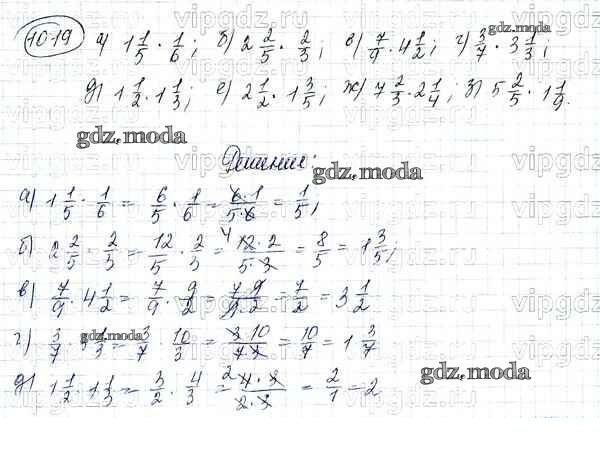 1019 а) 1 1/5 · 1/6; б) 2 2/5 · 2/3; в) 7/9 · 4 1/2; г) 3/7 · 3 1/3;
д) 1 1/2 · 1 1/3; е) 2 1/2 · 1 3/5; ж) 7 2/3 · 2 1/4; з) 5 2/5 · 1 1/9.
gdz.moda
Решение:
gdz.moda
а) 1 1/5 · 1/6 = 6/5 · 1/6 = 6·1/5·6 = 1/5;
б) 2 2/5 · 2/3 = 12/5 · 2/3 = 4 12·2/5·3 = 8/5 = 1 3/5;
в) 7/9 · 4 1/2 = 7/9 · 9/2 = 7·9/9·2 = 7/2 = 3 1/2
г) 3/7 · 3 1/3 = 3/7 · 10/3 = 3·10/7·3 = 10/7 = 1 3/7
gdz.moda
д) 1 1/2 · 1 1/3 = 3/2 · 4/3 = 2 4·3/2·3 = 2/1 = 2
gdz.moda
vipgdz